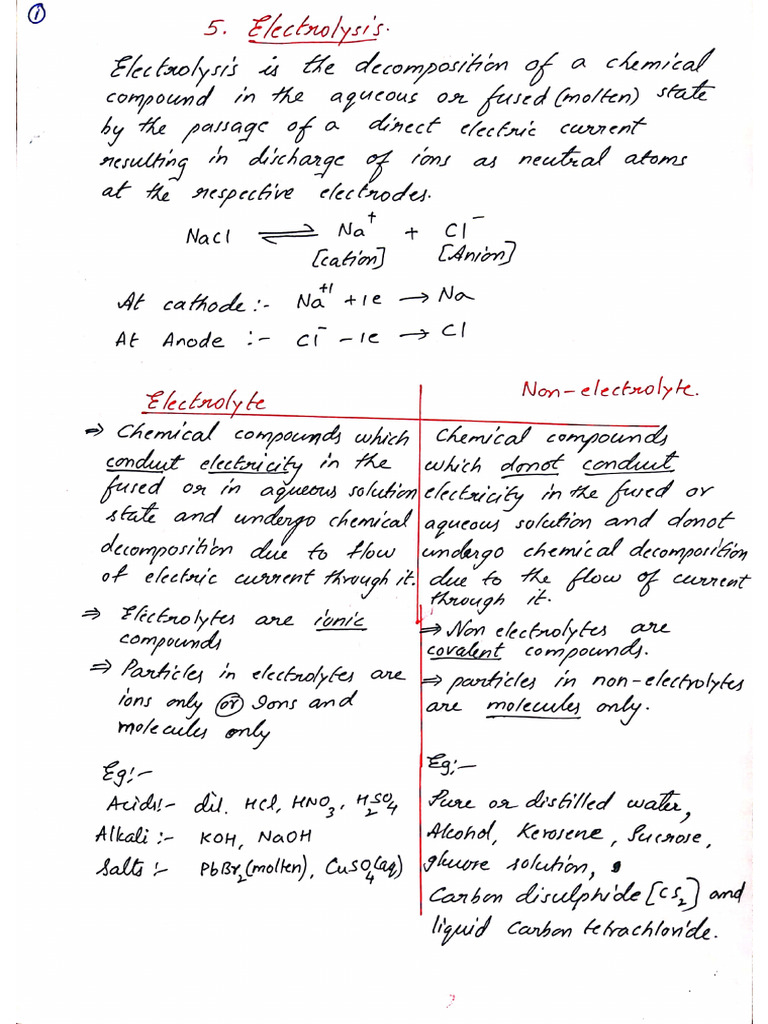 1
5. Electrolysis.
Electrolysis is the decomposition of a chemical
compound in the aqueous or fused (molten) state
by the passage of a direct electric current
resulting in discharge of ions as neutral atoms
at the respective electrodes.
NaCl ⇌ Na⁺ + Cl⁻
[cation] [Anion]
At cathode :- Na⁺¹ + 1e → Na
At Anode :- Cl⁻ - 1e → Cl
Electrolyte
⇒ Chemical compounds which
conduit electricity in the
fused or in aqueous solution
state and undergo chemical
decomposition due to flow
of electric current through it.
⇒ Electrolytes are ionic
compounds
⇒ Particles in electrolytes are
ions only (or) Ions and
molecules only
Eg:-
Acids:- dil. HCl, HNO₃, H₂SO₄
Alkali :- KOH, NaOH
Salts :- PbBr₂(molten), CuSO₄(aq)
Non-electrolyte.
Chemical compounds
which donot conduct
electricity in the fused or
aqueous solution and donot
undergo chemical decomposition
due to the flow of current
through it.
⇒ Non electrolytes are
covalent compounds.
⇒ particles in non-electrolytes
are molecules only.
Eg:-
Pure or distilled water,
Alcohol, Kerosene, Sucrose,
glucose solution,
Carbon disulphide [CS₂] and
liquid Carbon tetrachloride.